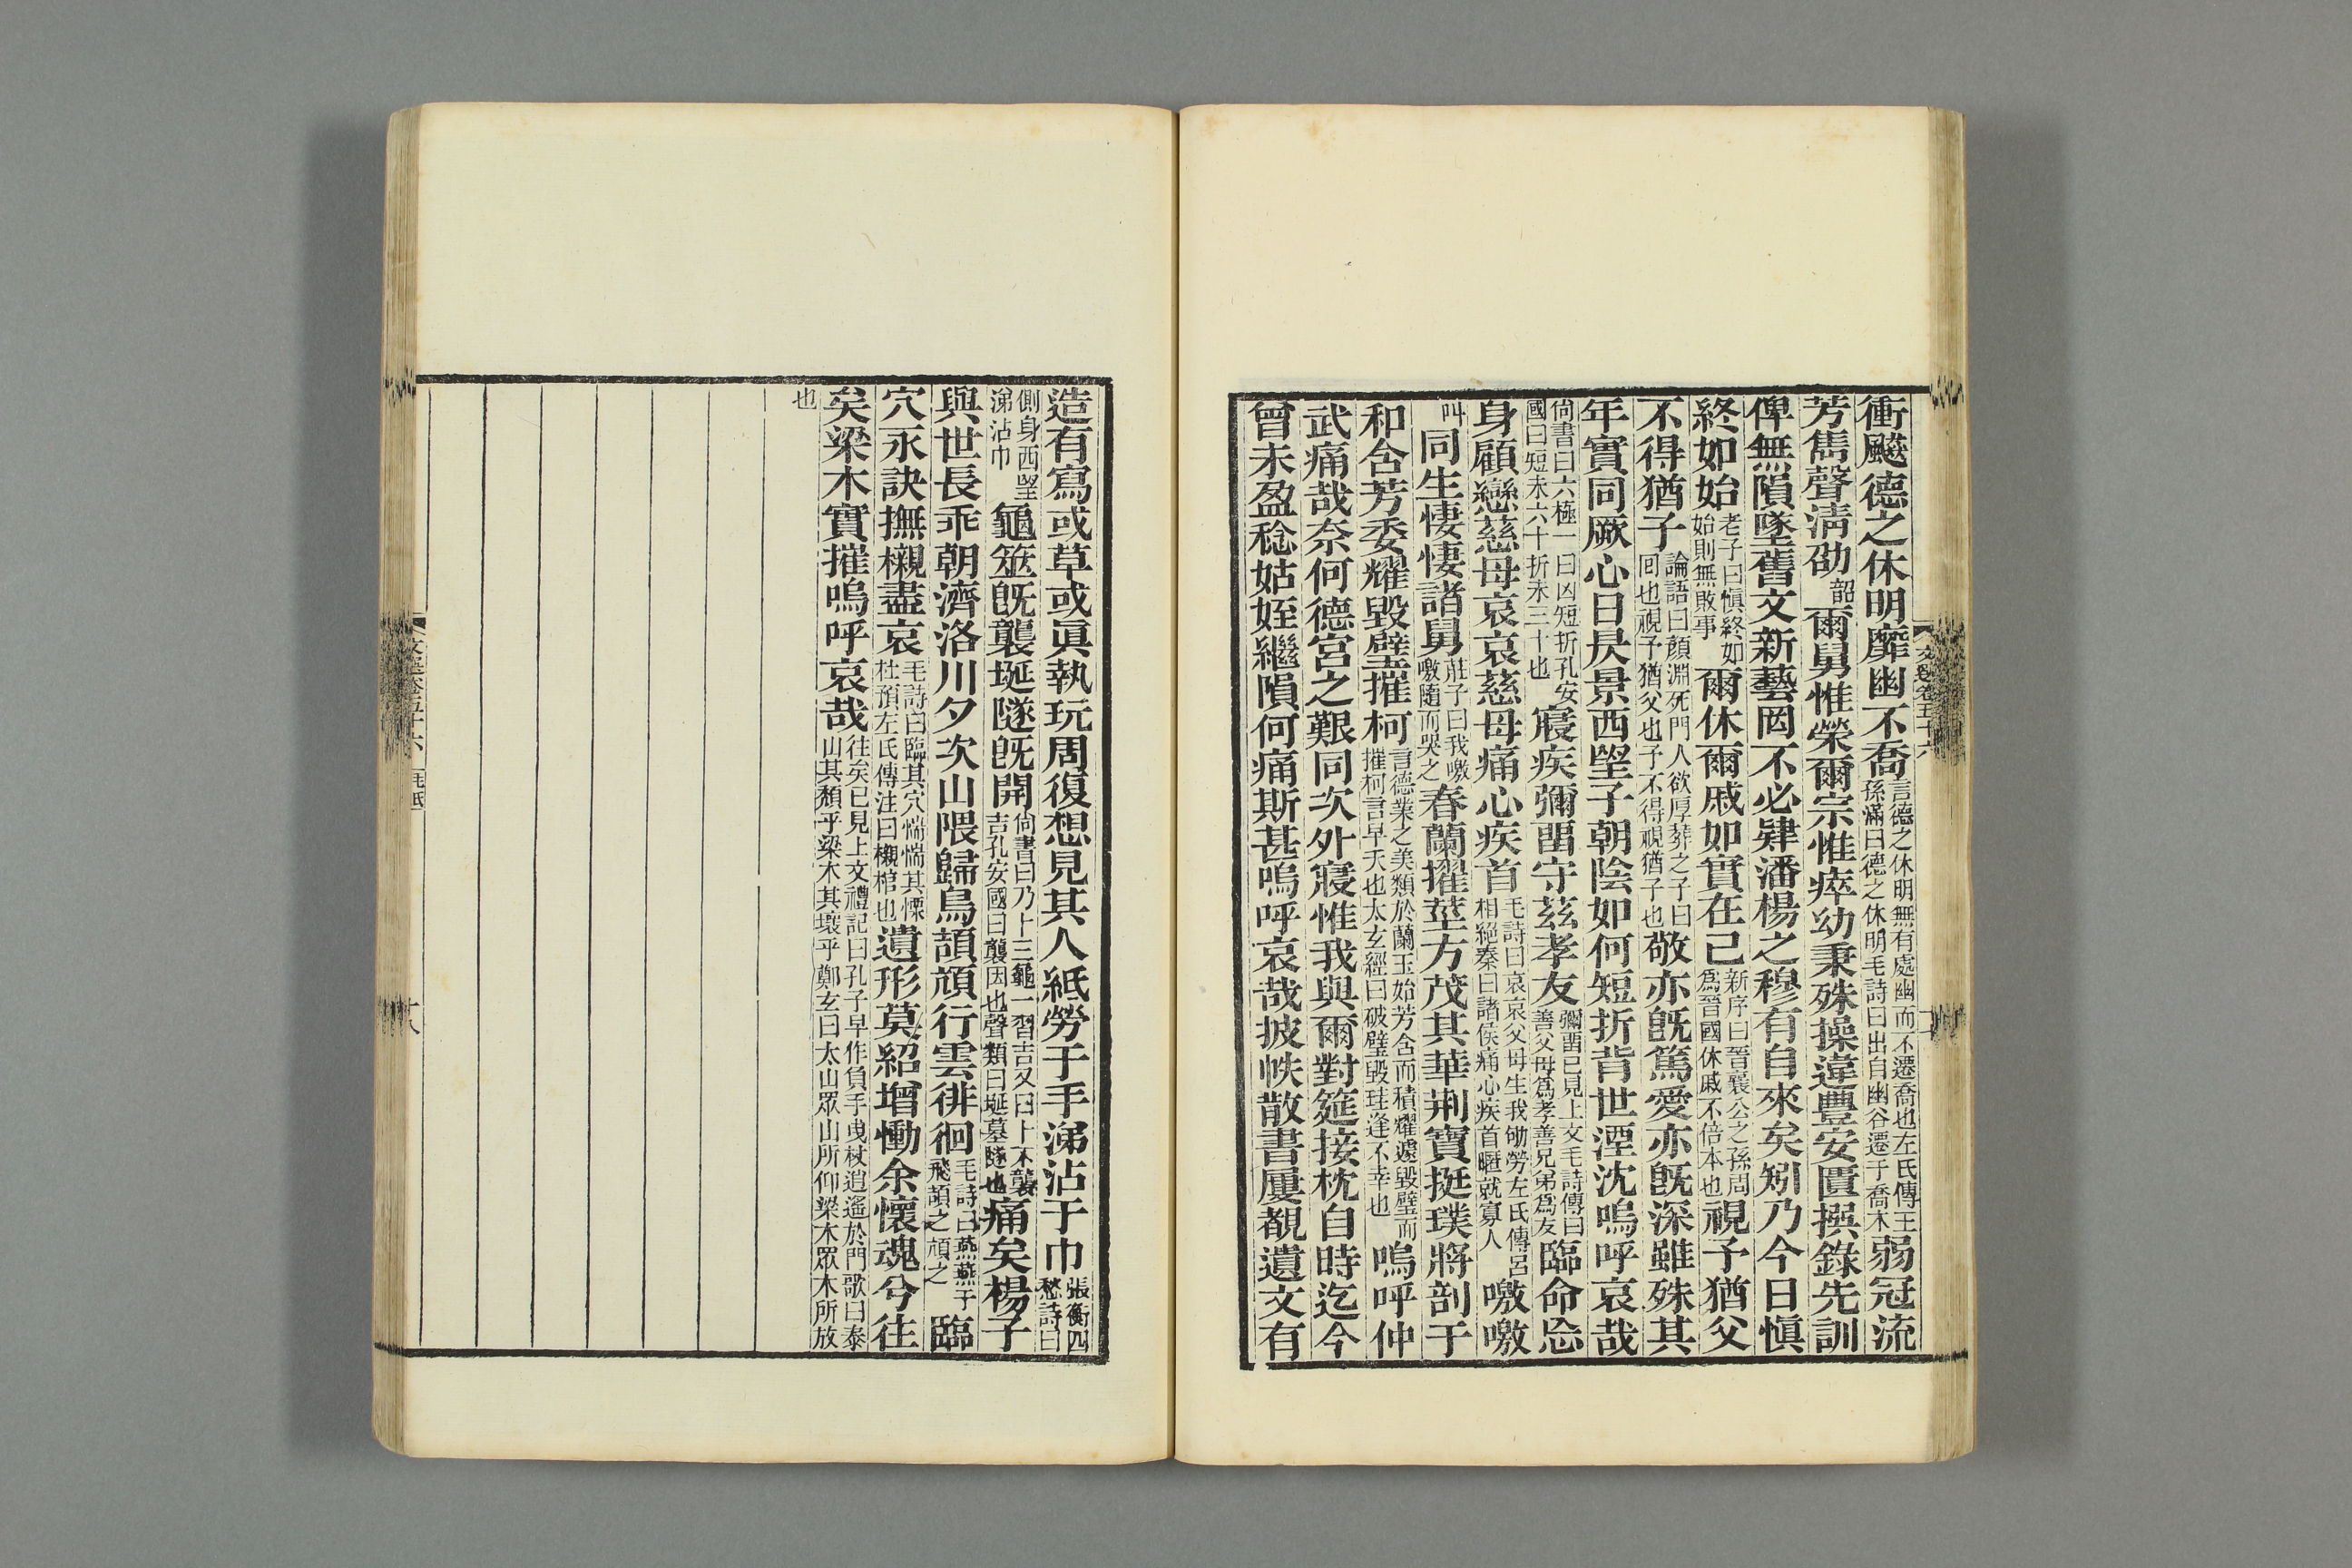 衝飈德之休明靡幽不喬言德之休明無有處幽而不遷喬也左氏傳王孫滿曰德之休明毛詩曰出自幽谷遷于喬木弱冠流
芳雋聲淸劭韶爾舅惟榮爾宗惟瘁幼秉殊操違豐安匱撰錄先訓
俾無隕墜舊文新藝罔不必肄潘楊之穆有自來矣矧乃今日愼
終如始老子曰愼終如始則無敗事爾休爾戚如實在己新序曰晉襄公之孫周爲晉國休戚不倍本也視予猶父
不得猶子論語曰顏淵死門人欲厚葬之子曰回也視予猶父也予不得視猶子也敬亦旣篤愛亦旣深雖殊其
年實同厥心日昃景西望子朝陰如何短折背世湮沈嗚呼哀哉
尙書曰六極一曰凶短折孔安國曰短未六十折未三十也寢疾彌留守茲孝友彌留已見上文毛詩傳曰善父母爲孝善兄弟爲友臨命忘
身顧戀慈母哀哀慈母痛心疾首毛詩曰哀哀父母生我劬勞左氏傳呂相絕秦曰諸侯痛心疾首暱就寡人噭噭
叫同生悽悽諸舅莊子曰我噭噭隨而哭之春蘭擢莖方茂其華荆寶挺璞將剖于
和含芳委耀毀璧摧柯言德業之美類於蘭玉始芳含而積耀遽毀璧而摧柯言早夭也太玄經曰破璧毀珪逢不幸也嗚呼仲
武痛哉奈何德宮之艱同次外寢惟我與爾對筵接枕自時迄今
曾未盈稔姑姪繼隕何痛斯甚嗚呼哀哉披帙散書屢覩遺文有
造有寫或草或眞執玩周復想見其人紙勞于手涕沾于巾張衡四愁詩曰
側身西望涕沾巾龜筮旣襲埏隧旣開尙書曰乃卜三龜一習吉又曰卜不襲吉孔安國曰襲因也聲類曰埏墓隧也痛矣楊子
與世長乖朝濟洛川夕次山隈歸鳥頡頏行雲徘徊毛詩曰燕燕于飛頡之頏之臨
穴永訣撫櫬盡哀毛詩曰臨其穴惴惴其慄杜預左氏傳注曰櫬棺也遺形莫紹增慟余懷魂兮往
矣梁木實摧嗚呼哀哉往矣已見上文禮記曰孔子早作負手曳杖逍遙於門歌曰泰山其頹乎梁木其壞乎鄭玄曰太山眾山所仰梁木眾木所放
也
文選卷五十六
十八